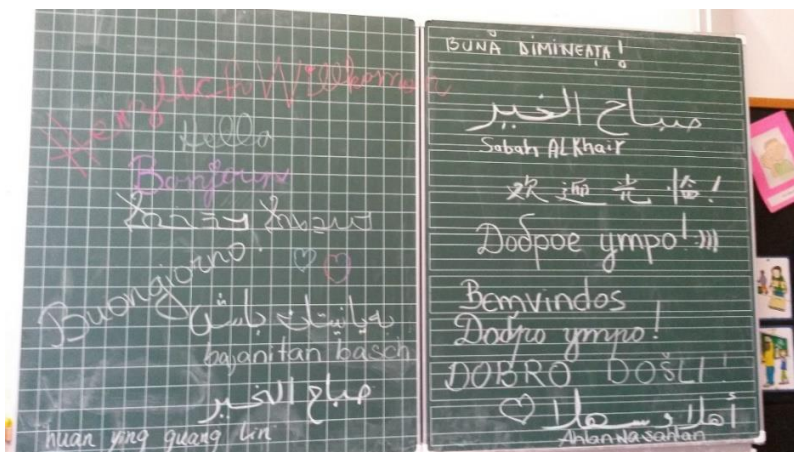 Herzlich Willkommen
Hello
Bonjour
Buongiorno!
بەیانیتان باش
bajanitan basch
صباح الخير
huan ying guang lin
BUNĂ DIMINEAȚA!
صباح الخير
Sabah AL Khair
欢迎光临!
Доброе утро! :)))
Bemvindos
Добро утро!
DOBRO DOŠLI!
أهلا و سهلا
Ahlan wa sahlan